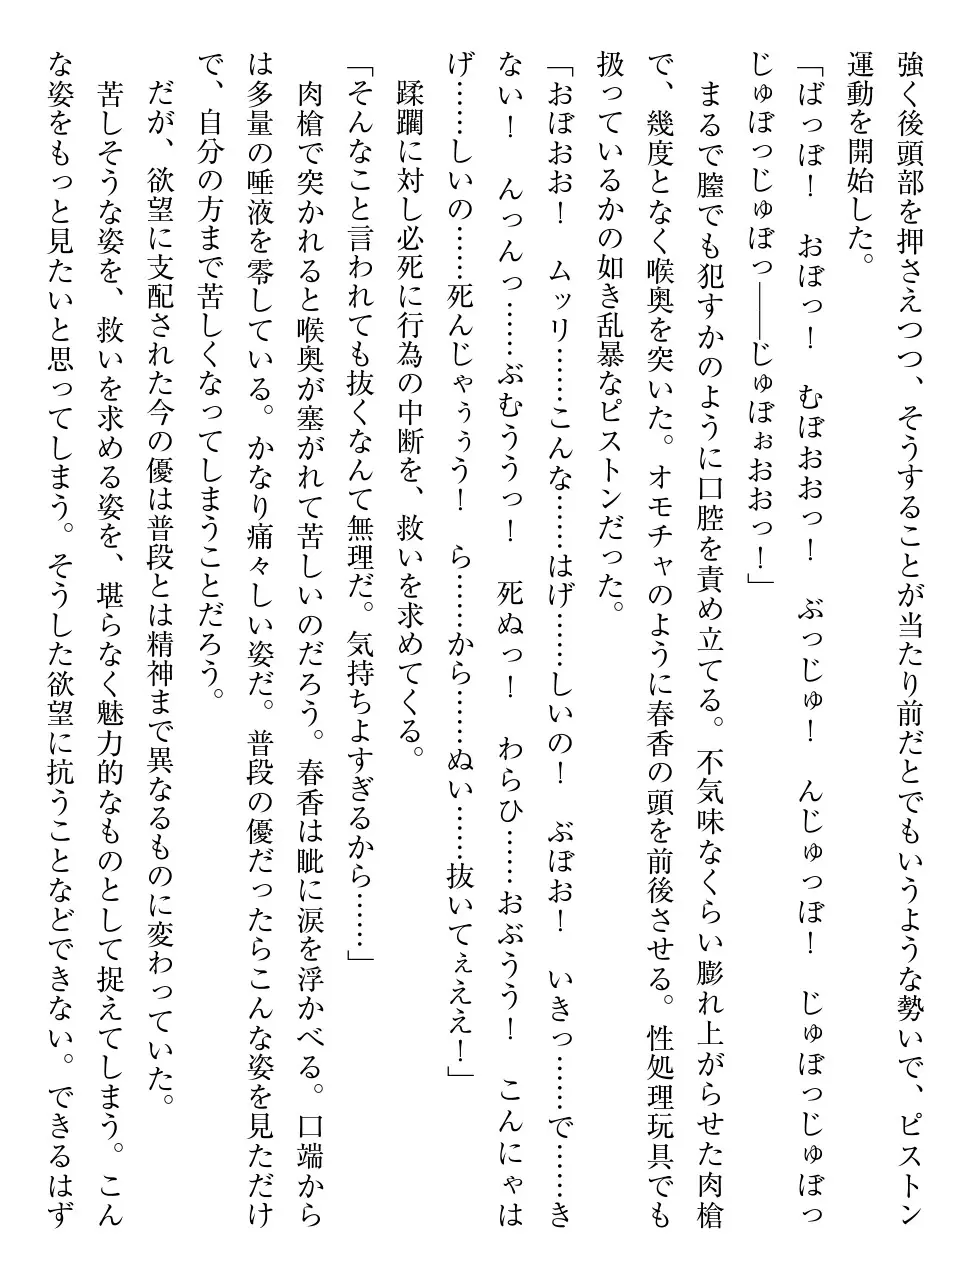 強く後頭部を押さえつつ、そうすることが当たり前だとでもいうような勢いで、ピストン
運動を開始した。
「ばっぼ！　おぼっ！　むぼおおっ！　ぶっじゅ！　んじゅっぼ！　じゅぼっじゅぼっ
じゅぼっじゅぼっ――じゅぼぉおおっ！」
まるで膣でも犯すかのように口腔を責め立てる。不気味なくらい膨れ上がらせた肉槍
で、幾度となく喉奥を突いた。オモチャのように春香の頭を前後させる。性処理玩具でも
扱っているかの如き乱暴なピストンだった。
「おぼおお！　ムッリ……こんな……はげ……しいの！　ぶぼお！　いきっ……で……き
ない！　んっんっ……ぶむううっ！　死ぬっ！　わらひ……おぶうう！　こんにゃは
げ……しいの……死んじゃぅぅう！　ら……から……ぬい……抜いてぇええ！」
蹂躙に対し必死に行為の中断を、救いを求めてくる。
「そんなこと言われても抜くなんて無理だ。気持ちよすぎるから……」
肉槍で突かれると喉奥が塞がれて苦しいのだろう。春香は眦に涙を浮かべる。口端から
は多量の唾液を零している。かなり痛々しい姿だ。普段の優だったらこんな姿を見ただけ
で、自分の方まで苦しくなってしまうことだろう。
だが、欲望に支配された今の優は普段とは精神まで異なるものに変わっていた。
苦しそうな姿を、救いを求める姿を、堪らなく魅力的なものとして捉えてしまう。こん
な姿をもっと見たいと思ってしまう。そうした欲望に抗うことなどできない。できるはず